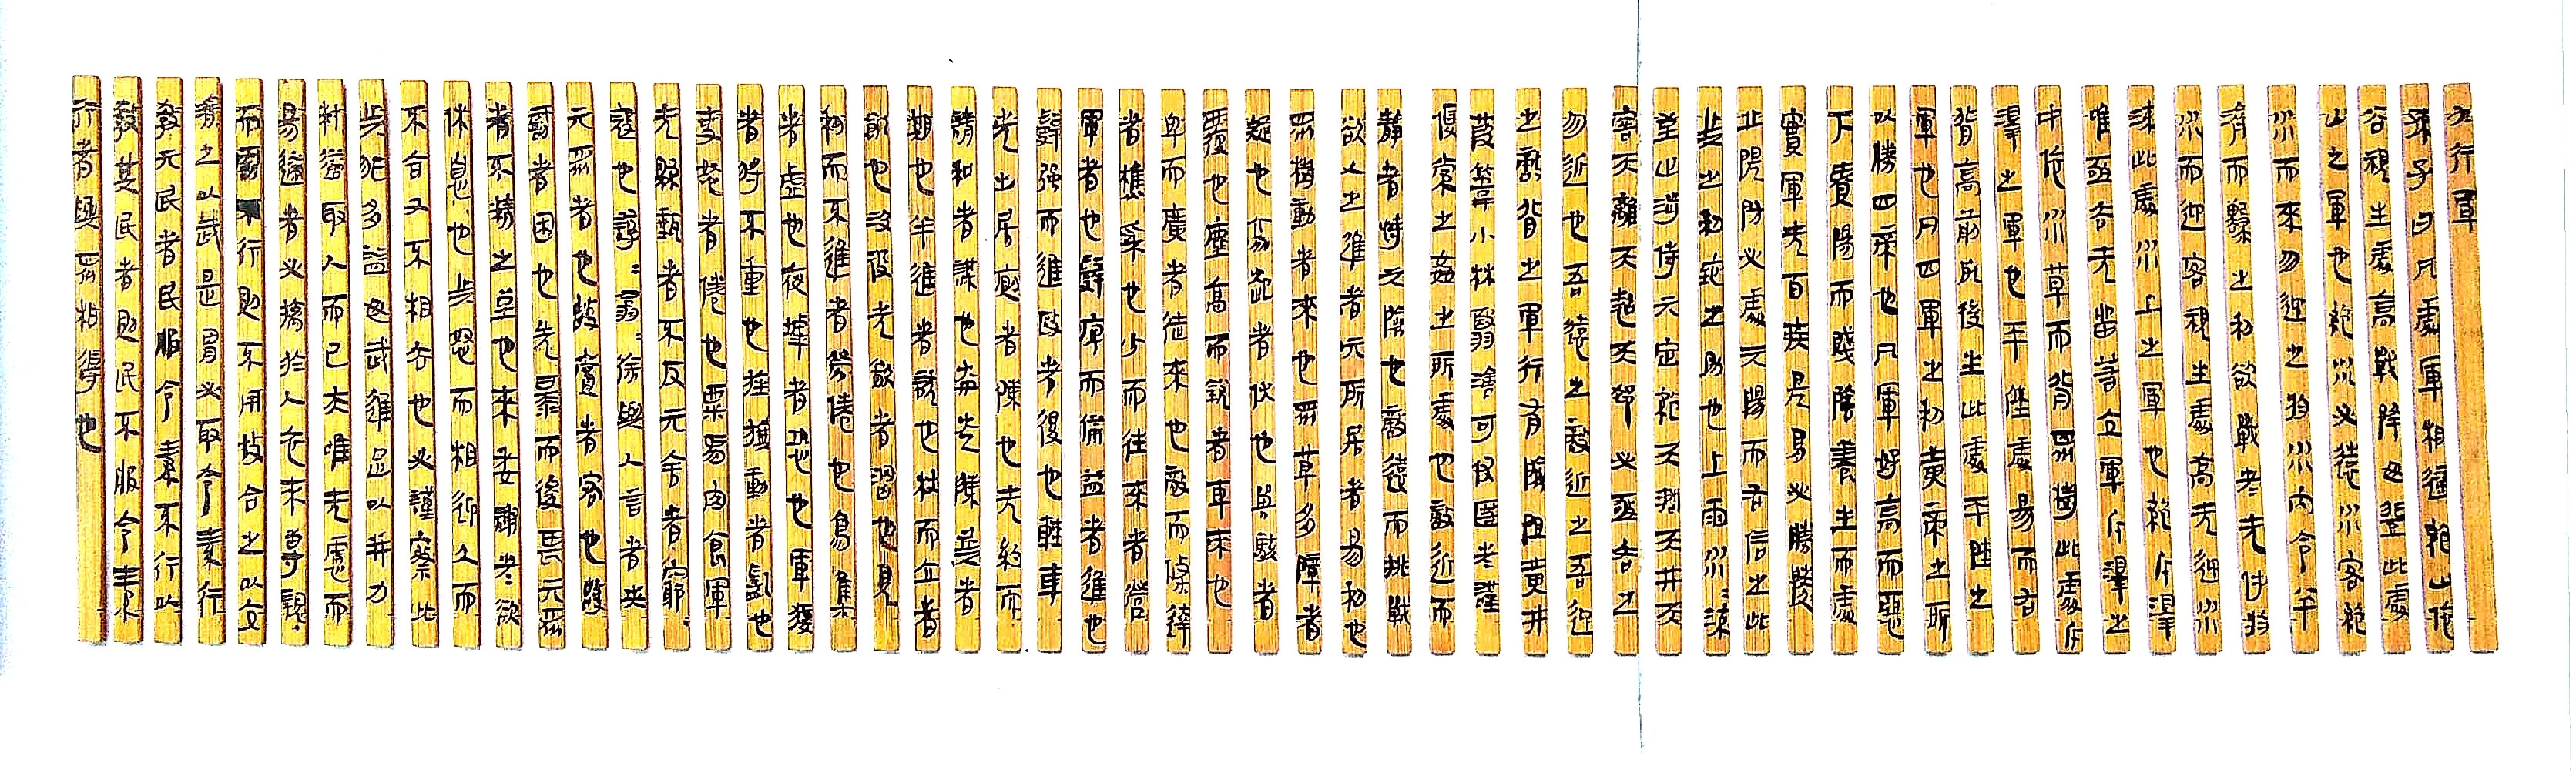 九行軍
孫子曰凡處軍相適絕山依
谷視生處高戰降毋登此處
山之軍也絕水必遠水客絕
水而來勿迎之於水內令半
濟而擊之利欲戰者无傅於
水而迎客視生處高无迎水
流此處水上之軍也絕斥澤
唯亟去无留若交軍斥澤之
中依水草而背眾樹此處斥
澤之軍也平陸處易而右
背高前死後生此處平陸之
軍也凡四軍之利黃帝之所
以勝四帝也凡軍好高而惡
下貴陽而賤陰養生而處
實軍无百疾是胃必勝陵
丘陽防必處其陽而右倍之此
兵之利地之助也上雨水水流
至止涉待其定絕天澗天井天
窖天離天翹天郄必亟去之
勿近也吾遠之敵近之吾迎
之敵背之軍行有險阻潢井
葭葦小林翳澮可伏匿者謹
復索之姦之所處也敵近而
靜者恃其險也敵遠而挑戰
欲人之進者其所居者易利也
眾樹動者來也眾草多障者
疑也鳥起者伏也獸駭者
覆也塵高而銳者車來也
卑而廣者徒來也散而條達
者樵采也少而往來者營
軍者也辭庳而備益者進也
辭強而進驅者退也輕車
先出居廁者陳也无約而
請和者謀也奔走陳兵者
期也半進者誘也杖而立者
飢也汲役先飲者渴也見
利而不進者勞倦也鳥集
者虛也夜嘑者恐也軍擾
者將不重也旌旗動者亂也
吏怒者倦也粟馬肉食軍
无懸甀者不反其舍者窮
寇也諄諄翕翕徐與人言者失
其眾者也數賞者窘也數
罰者困也先暴而後畏其眾
者不精之至也來委謝者欲
休息也兵怒而相迎久而
不合又不相去也必謹察此
兵非多益毋武進足以并力
料敵取人而已夫唯无慮而
易敵者必擒於人卒未尊親
而罰不行則不用故合之以交
濟之以武是胃必取令素行
教其民者民服令素不行以
教其民者則民不服令素
行者與眾相得也